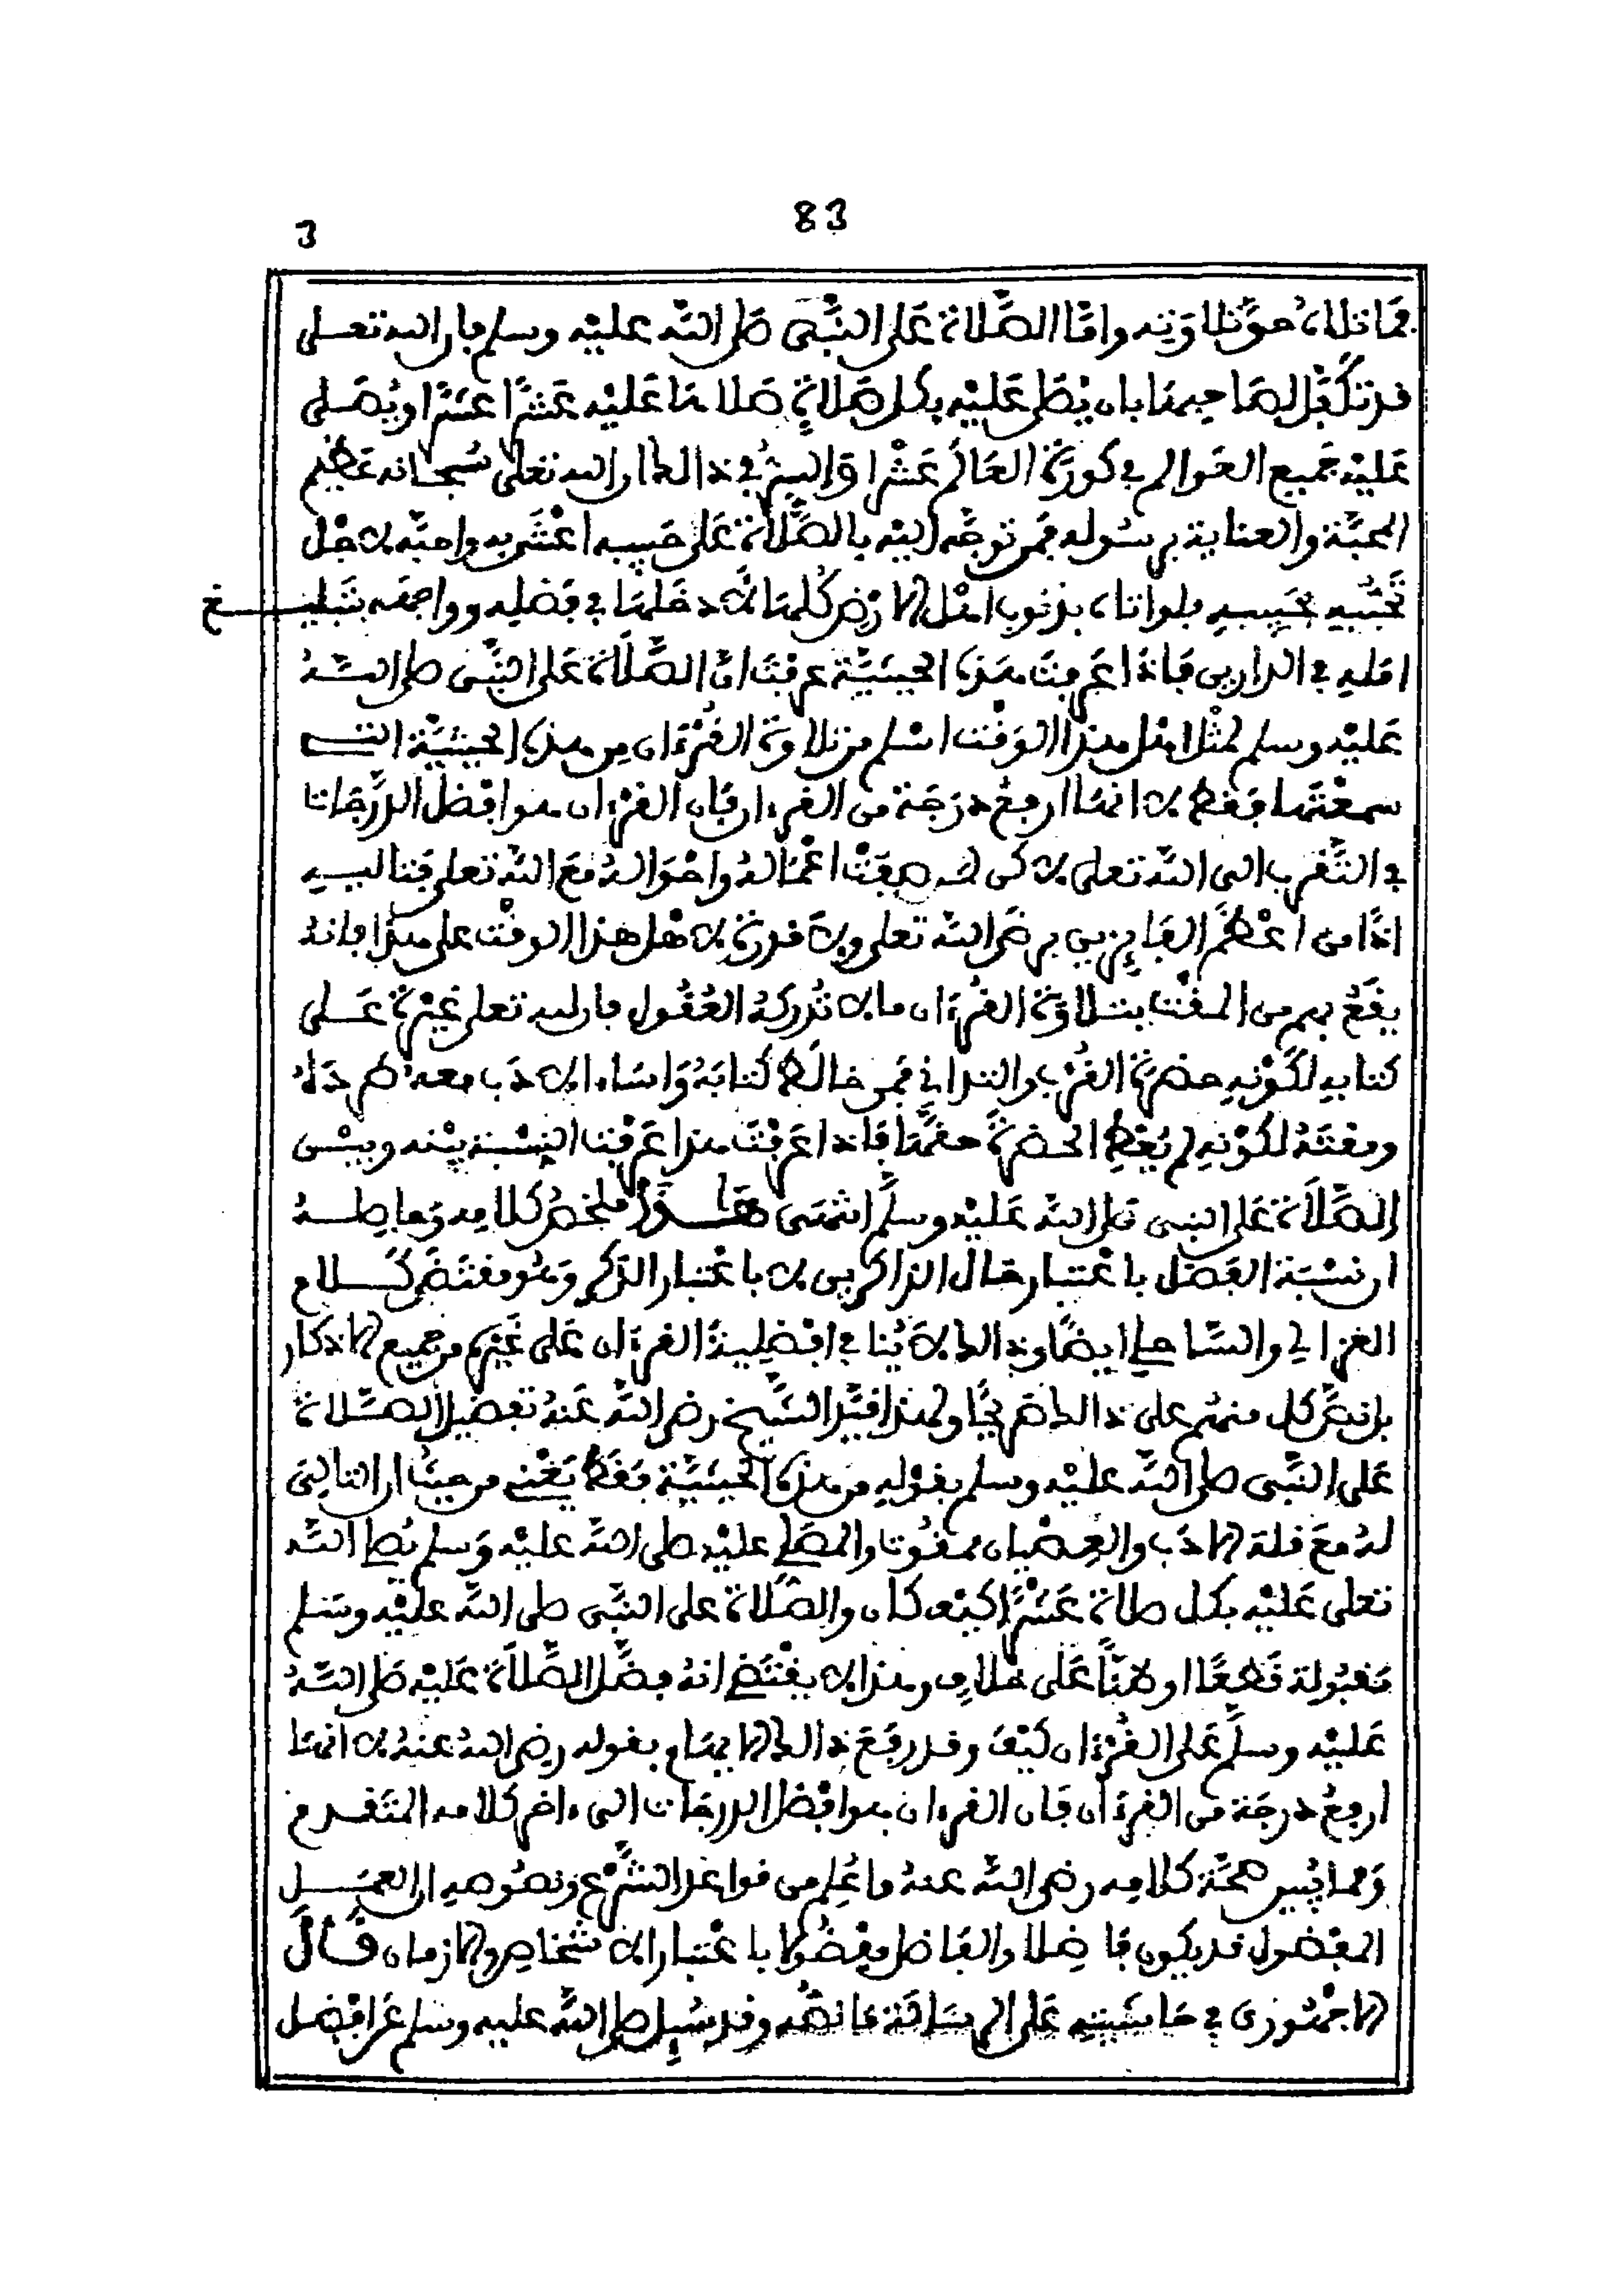 83
3
فما تلاه حق تلاوته واما الصلاة على النبي صلى الله عليه وسلم فان الله تعلى
قد تكفل لصاحبها بان يصلي عليه بكل صلاة صلاها عليه عشرا عشرا ويصلي
عليه جميع العوالم في كورة العالم عشرا والسر في ذالك ان الله تعلى سبحانه عظيم
المحبة والعناية برسوله فمن توجه اليه بالصلاة على حبيبه اعتنى به واحبه لاجل
تحببه بحبيبه فلو اتاه بذنوب اهل الارض كلها لادخلها في فضله وواجهه بتبليغ
امله في الدارين فاذا عرفت هذه الحيثية عرفت ان الصلاة على النبي صلى الله
عليه وسلم لمثل اهل هذا الوقت اسلم من تلاوة القرءان من هذه الحيثية التي
سمعتها فقط لا انها ارفع درجة من القرءان فان القرءان هو افضل الدرجات
في التقرب الى الله تعلى لاكن لمن صفت اعماله واحواله مع الله تعلى فتاليه
اذا من اعظم الفايزين برضى الله تعلى ولا قدرة لاهل هذا الوقت على هذا فانه
يقع بهم من المقت بتلاوة القرءان ما لا تدركه العقول فان لله تعلى غيرة على
كتابه لكونه حضرة القرب والتداني فمن خالط كتابه واساء الادب معه طرده
ومقته لكونه لم يعط الحضرة حقها فاذا عرفت هذا عرفت النسبة بينه وبين
الصلاة على النبي صلى الله عليه وسلم انتهى هذا ملخص كلامه وحاصله
ان نسبة الفضل باعتبار حال الذاكرين لا باعتبار الذكر وهو مقتضى كلام
الغزالي والساحلي ايضا وذالك لا ينافي افضلية القرءان على غيره من جميع الاذكار
بل نص كل منهم على ذالك صريحا ولهذا قيد الشيخ رضي الله عنه تفضيل الصلاة
على النبي صلى الله عليه وسلم بقوله من هذه الحيثية فقط يعني من حيث ان التالي
له مع قلة الادب والعصيان ممقوت والمصلي عليه صلى الله عليه وسلم يصلي الله
تعلى عليه بكل صلاة عشرا كيف كان والصلاة على النبي صلى الله عليه وسلم
مقبولة قطعا او ظنا على خلاف وهذا لا يقتضي انه فضل الصلاة عليه صلى الله
عليه وسلم على القرءان كيف وقد رفع ذالك الايهام بقوله رضي الله عنه لا انها
ارفع درجة من القرءان فان القرءان هو افضل الدرجات الى ءاخر كلامه المتقدم
ومما يبين صحة كلامه رضي الله عنه ما علم من قواعد الشرع ونصوصه ان العمل
المفضول قد يكون فاضلا والفاضل مفضولا باعتبار الاشخاص والازمان قال
الاجهوري في حاشيته على الرسالة ما نصه وقد سيل صلى الله عليه وسلم عن افضل